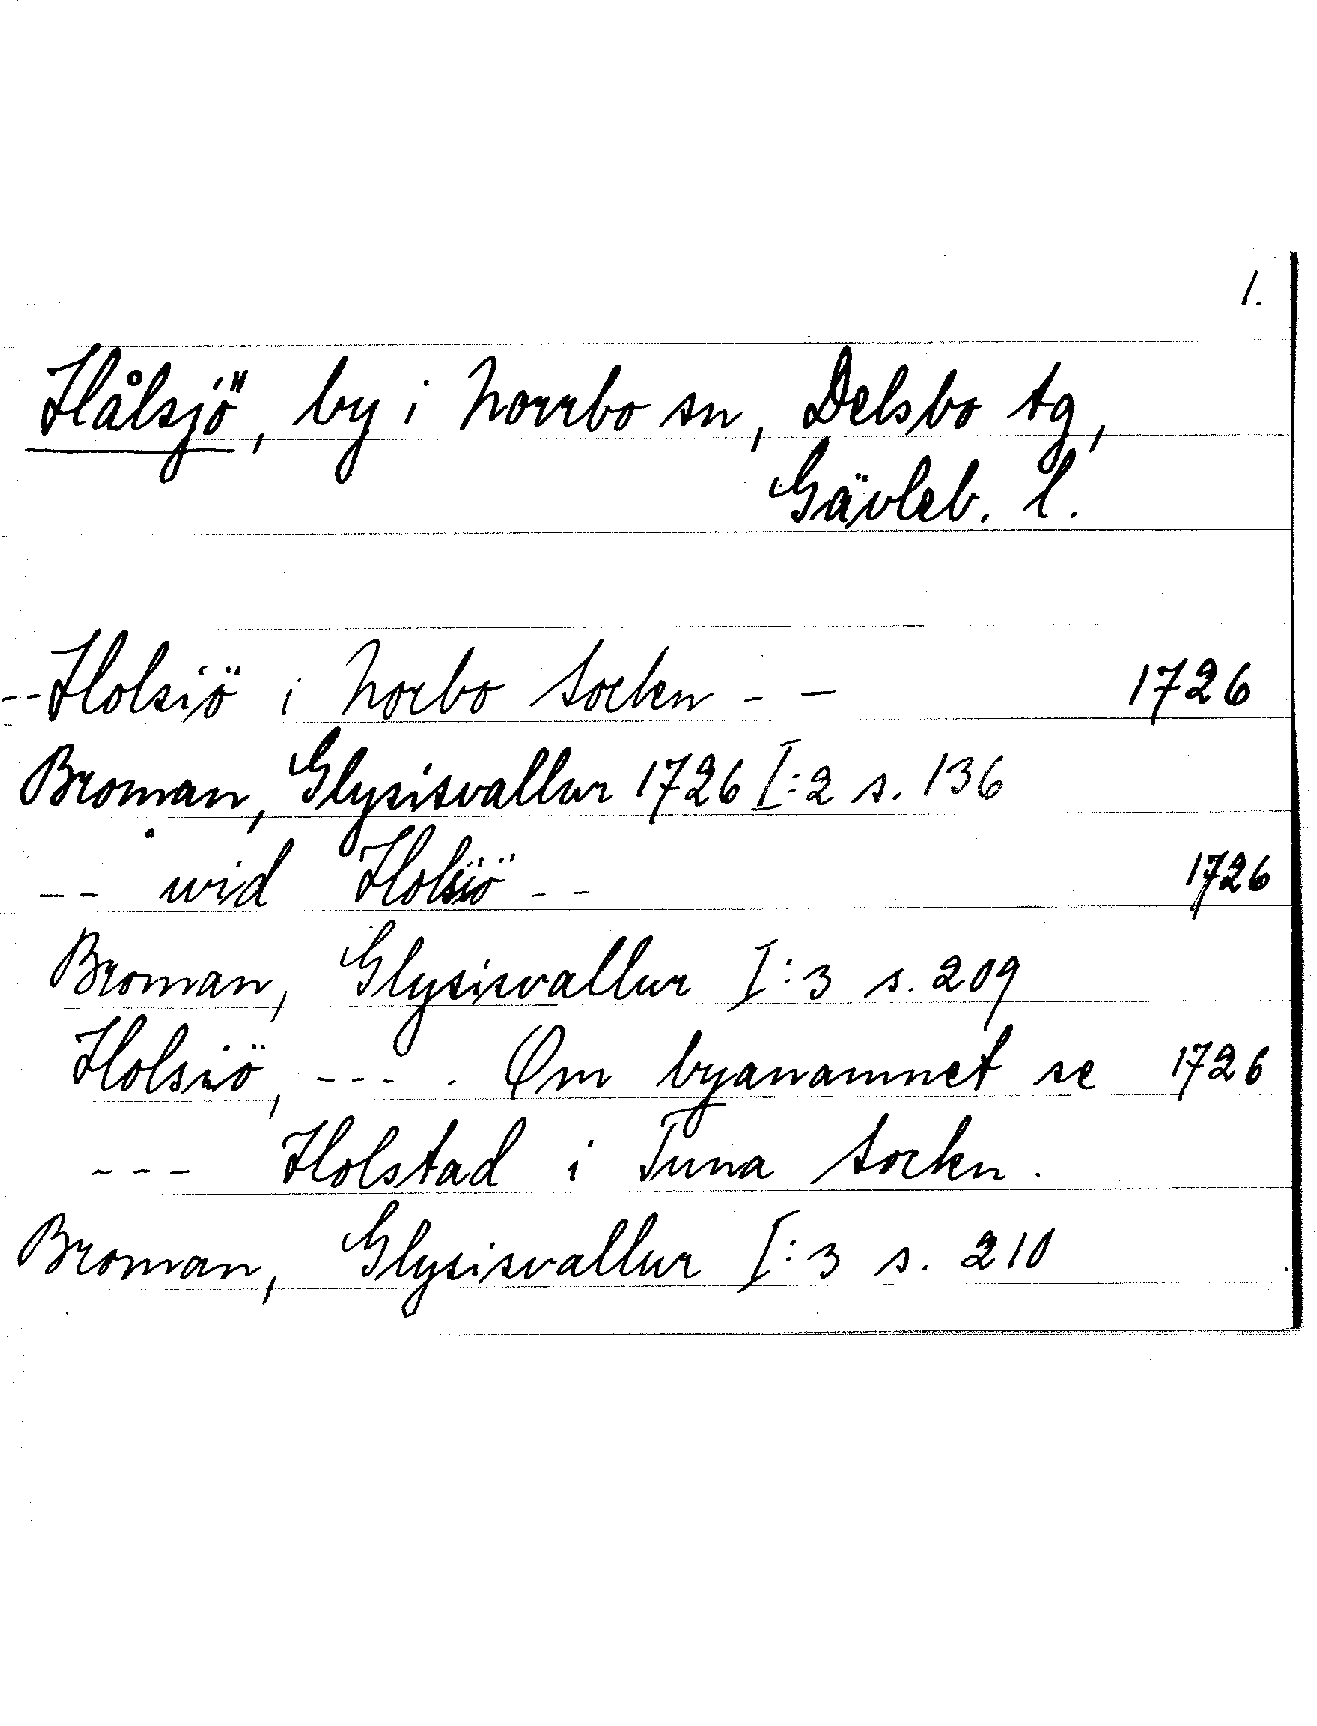 1.
Hålsjö, by i Norrbo sn, Delsbo tg,
Gävleb. l.
-- Holsiö i Norbo Sockn - -     1726
Broman, Glysisvallur 1726 I:2 s. 136
-- wid Holsiö --     1726
Broman, Glysisvallur I:3 s. 209
Holsiö, --- . Om byanamnet se     1726
--- Holstad i Tuna Sockn.
Broman, Glysisvallur I:3 s. 210